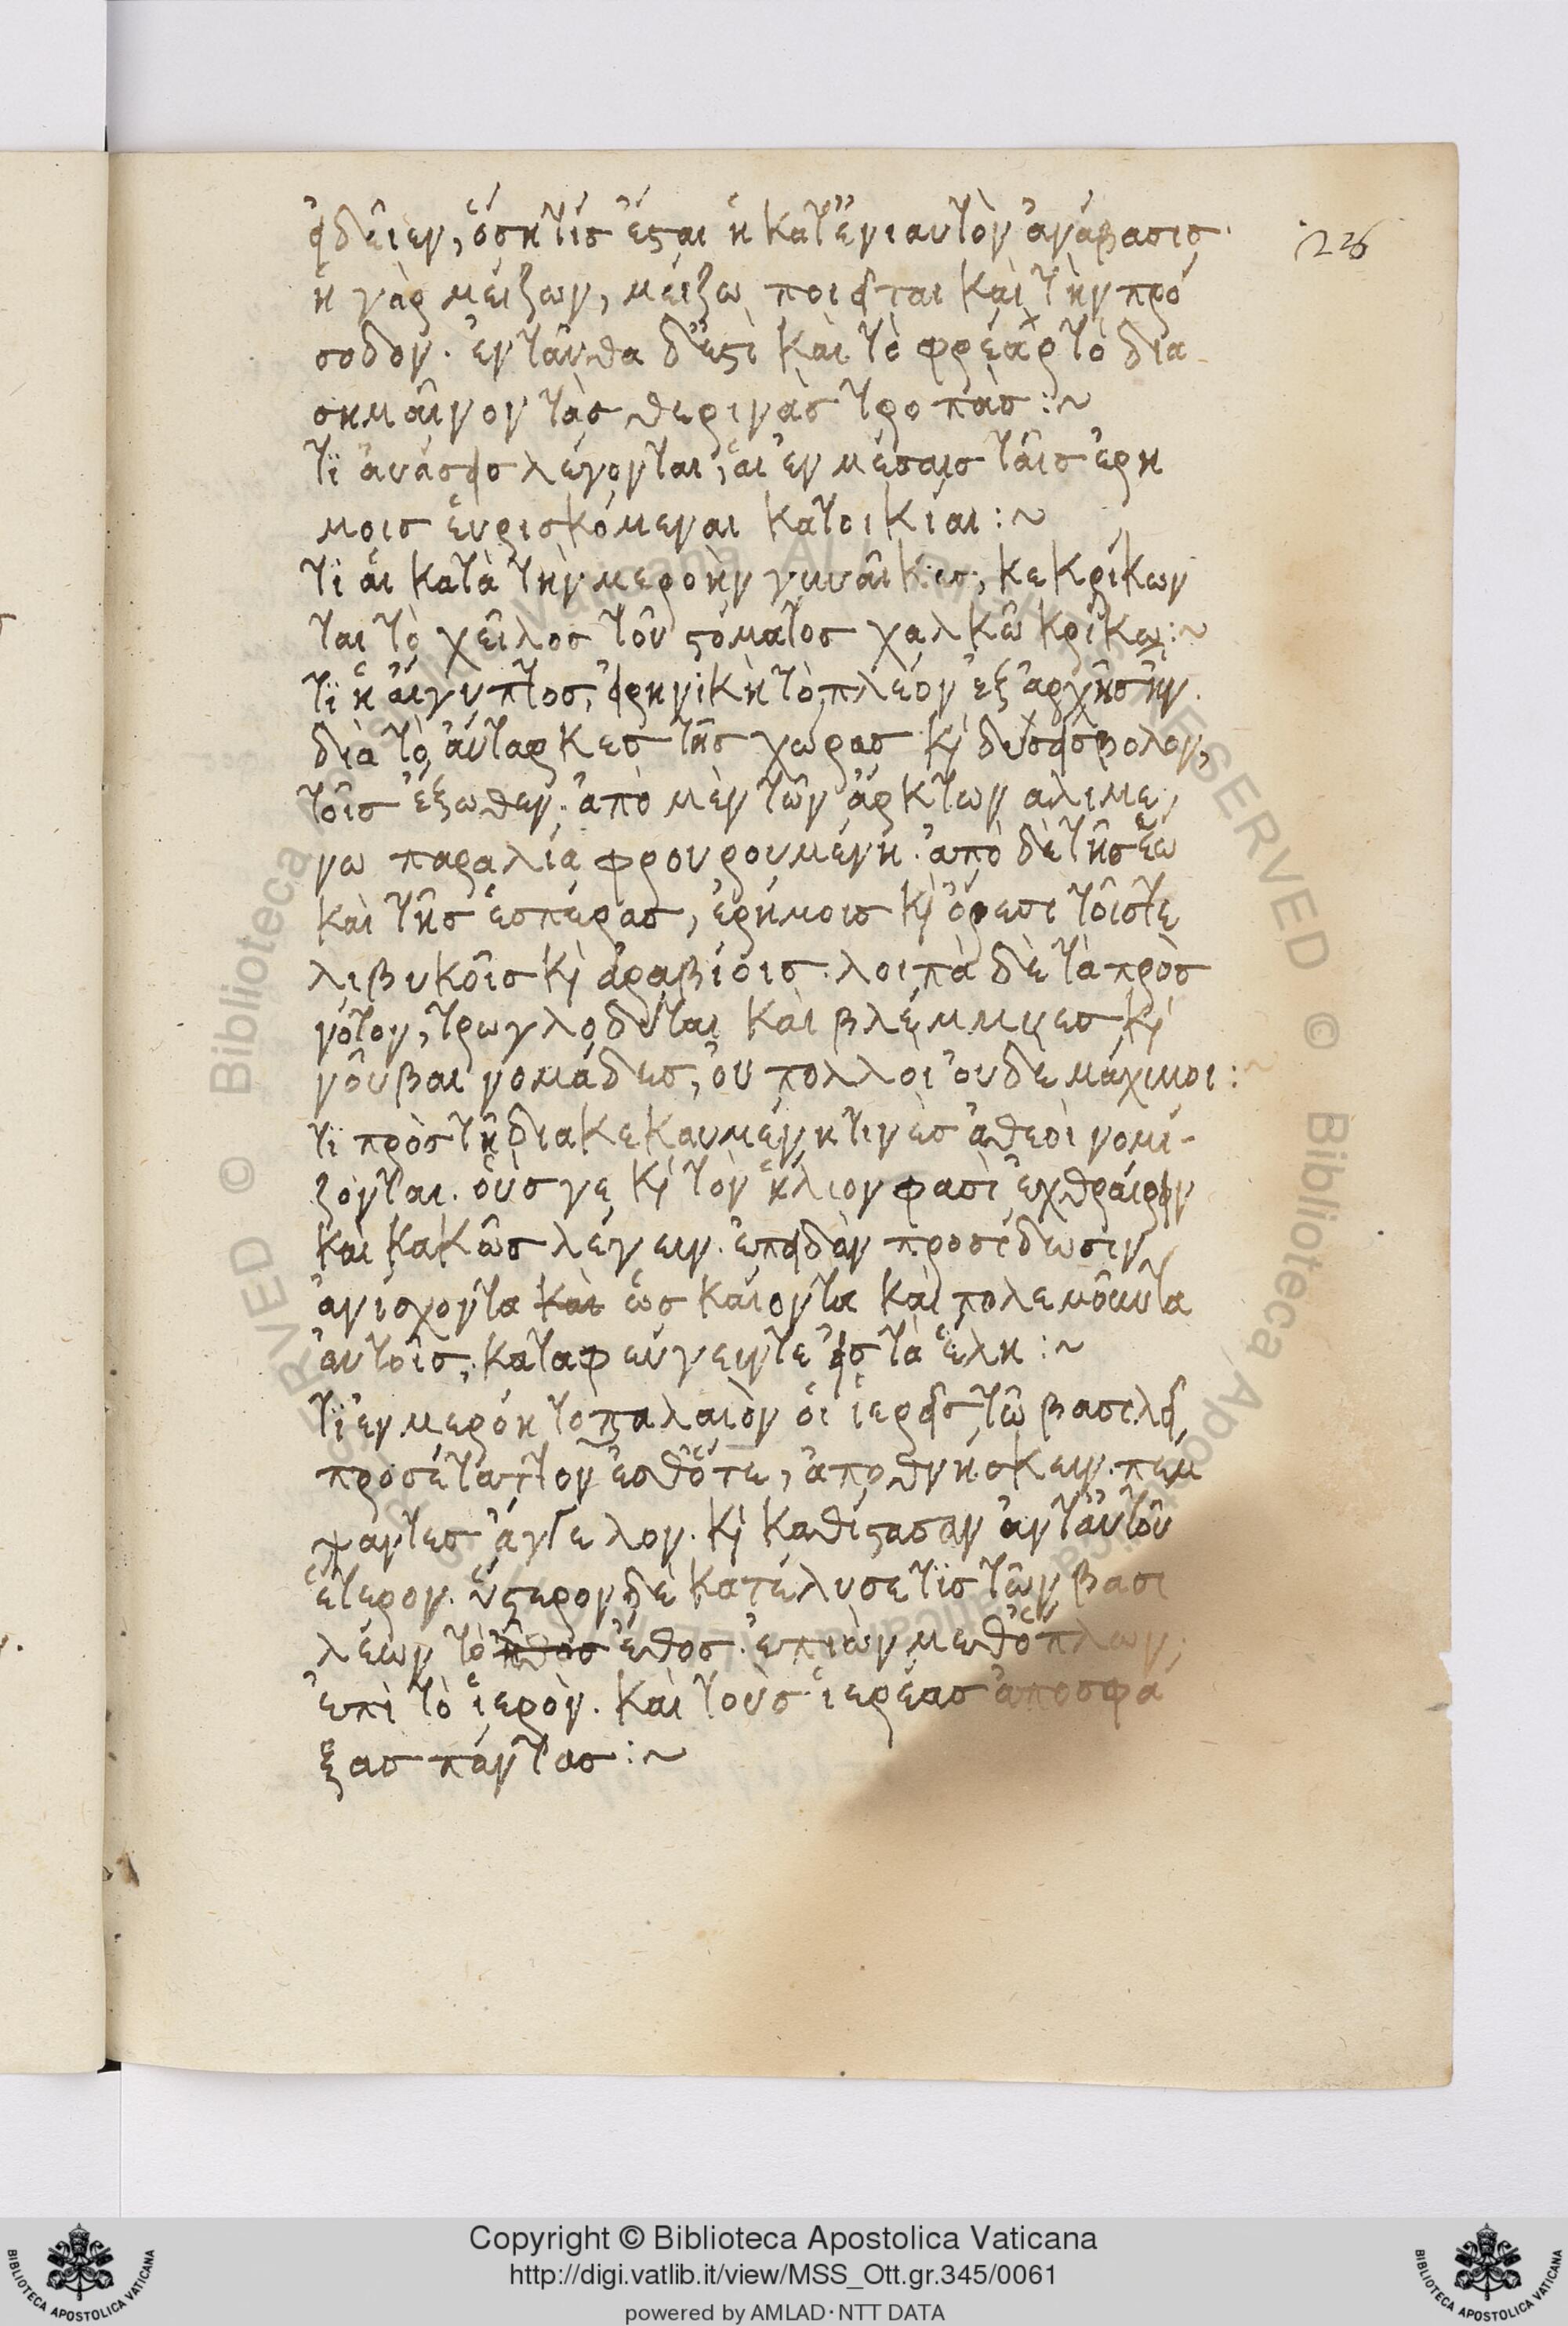 εἰδεῖεν, ὅση τίσ ἔσται ἡ κατ' ἐνιαυτὸν ἀνάβασισ·
ἡ γὰρ μείζων, μείζω ποιεῖται καὶ τὴν πρό
σοδον. ἐνταῦθα δ' ἐστὶ καὶ τὸ φρέαρ τὸ δια
σημαῖνον τὰσ θερινὰσ τροπάσ :~
τϊ ἀυάσεισ λέγονται, ἁι ἐν μέσαισ ταῖσ ἐρή
μοισ ἑυρισκόμεναι κατοικίαι :~
τϊ ἁι κατὰ τὴν μερόην γυναῖκεσ, κεκρίκων
ται τὸ χεῖλοσ τοῦ στόματοσ χαλκῶ κρίκω :~
τϊ ἡ ἄιγυπτοσ, εἰρηνικὴ τὸ πλέον ἐξ ἀρχῆσ ἦν.
διὰ τὸ ἄυταρκεσ τῆσ χώρασ κὶ δυσείσβολον,
τοῖσ ἔξωθεν. ἀπὸ μὲν τῶν ἄρκτων ἀλιμέ
νω παραλία φρουρουμένη. ἀπὸ δὲ τῆσ ἕω
καὶ τῆσ ἑσπέρασ, ἐρήμοισ κὶ ὄρεσι τοῖστε
λιβυκοῖσ κὶ ἀραβίοισ. λοιπὰ δὲ τὰ πρὸσ
νότον, τρωγλοδύται καὶ βλέμμυεσ κὶ
νοῦβαι νομάδεσ, ὀυ πολλοὶ ὀυδὲ μάχιμοι :~
τϊ πρὸσ τῆ διακεκαυμένη τινὲσ ἄθεοι νομί-
ζονται. ὅυσ γε κὶ τὸν ἥλιον φασὶ ἐχθραίρειν
καὶ κακῶσ λέγειν. ἐπειδὰν προσίδωσιν
ἀνίσχοντα ὡσ καίοντα καὶ πολεμοῦντα
ἀυτοῖσ, καταφεύγειν τε εἰσ τὰ ἕλη :~
τϊ ἐν μερόη τοπαλαιὸν ὁι ἱερεῖσ τῶ βασιλεῖ
προσέταττον ἔσθ' ὅτε, ἀποθνήσκειν. πέμ
ψαντεσ ἄγγελον. κὶ καθίστασαν ἀντ' ἀυτοῦ
ἕτερον. ὕστερον δὲ κατέλυσε τϊσ τῶν βασι
λέων τὸ ἔθοσ. ἐπιὼν μεθ' ὅπλων,
ἐπὶ τὸ ἱερὸν. καὶ τοὺσ ἱερέασ ἀποσφά
ξασ πάντασ :~
Copyright © Biblioteca Apostolica Vaticana
http://digi.vatlib.it/view/MSS_Ott.gr.345/0061
powered by AMLAD · NTT DATA